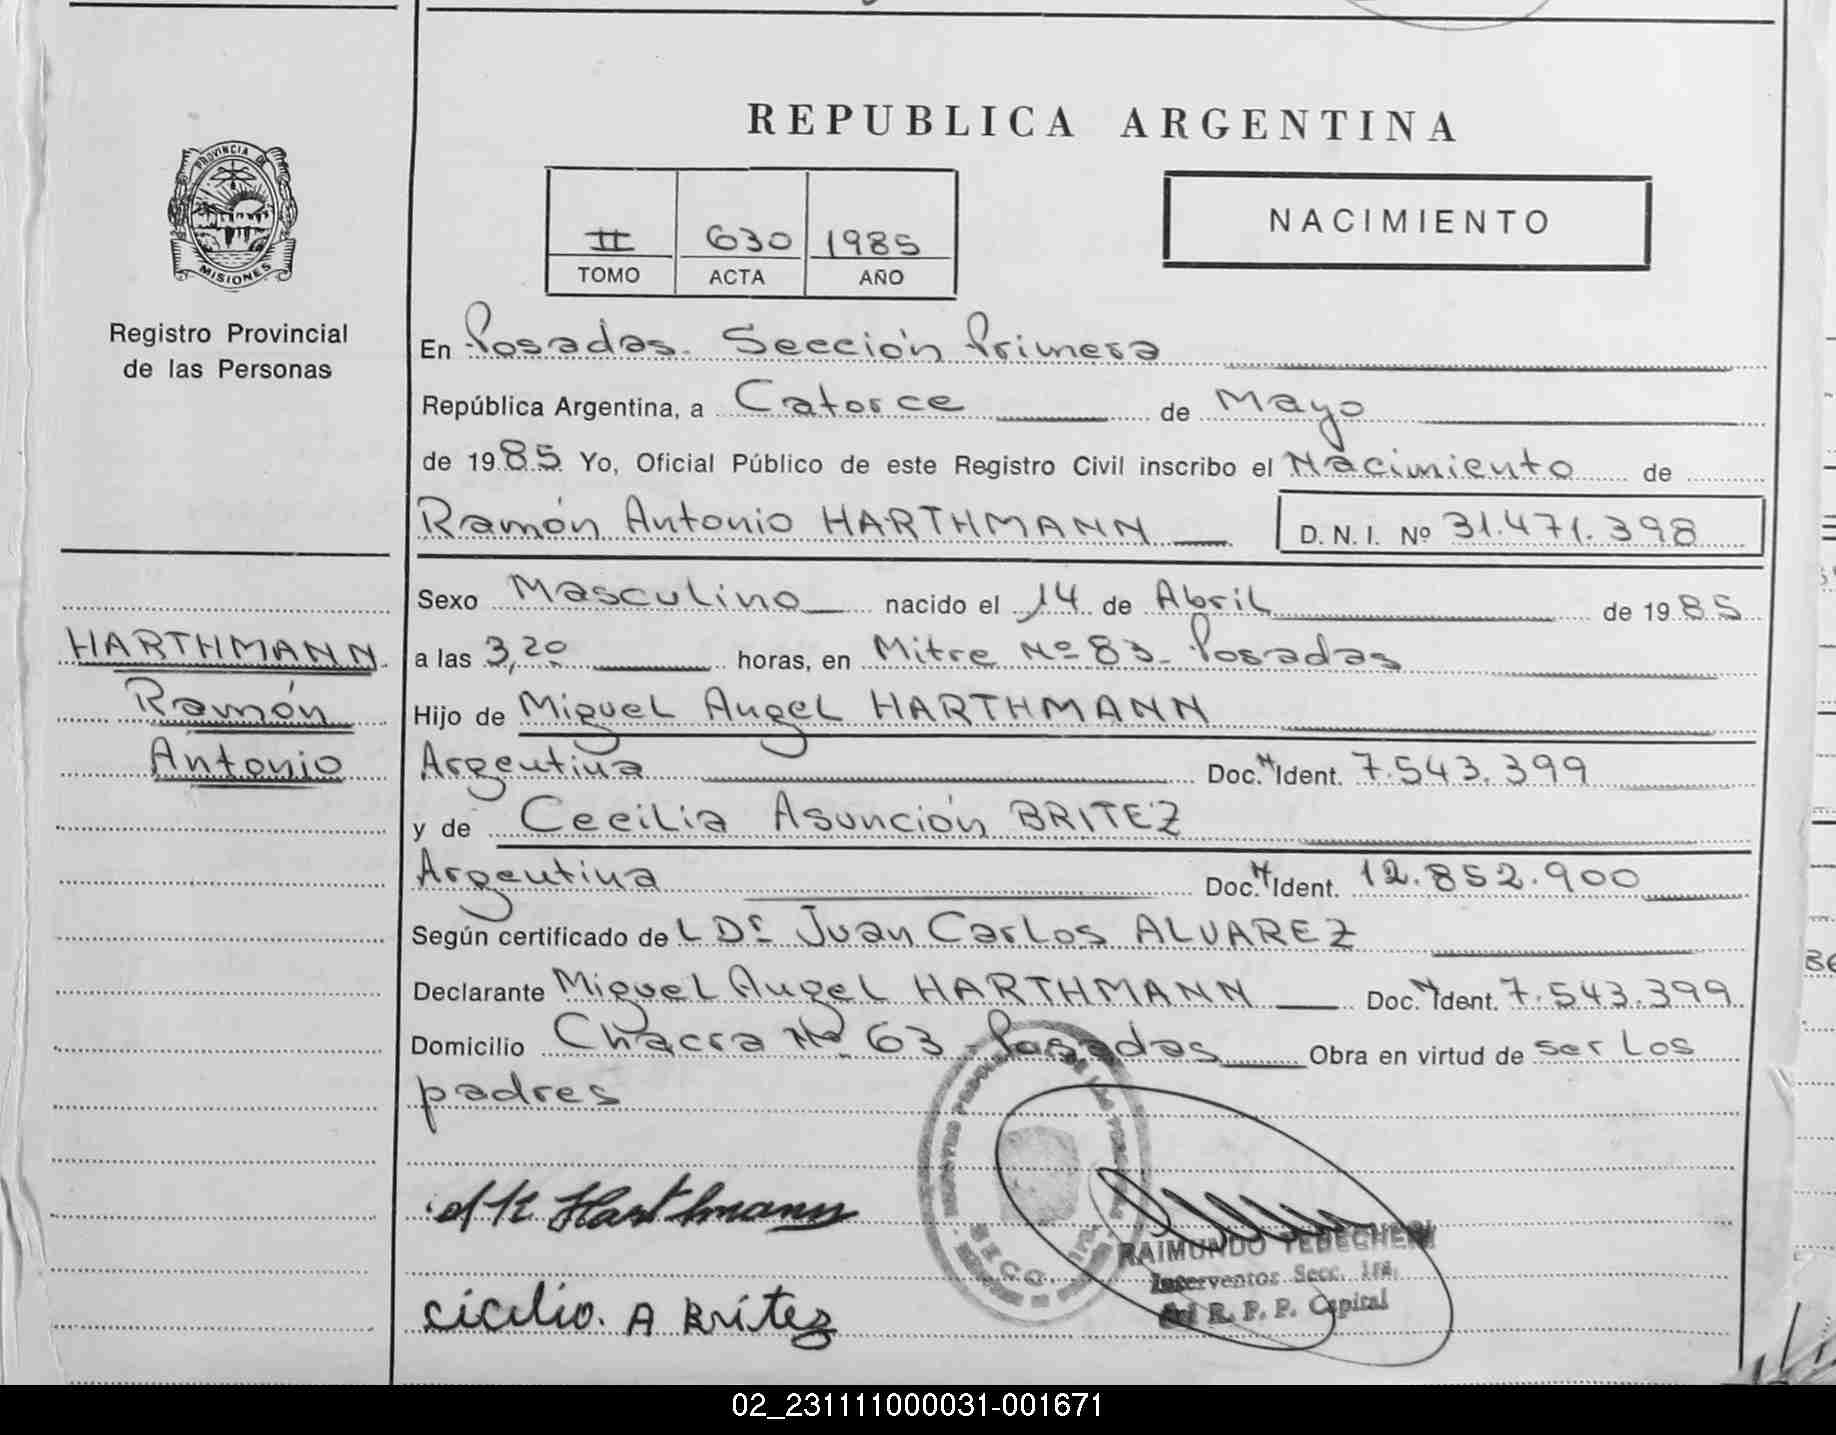 REPUBLICA ARGENTINA
PROVINCIA DE
MISIONES
Registro Provincial
de las Personas
II 630 1985
TOMO ACTA AÑO
NACIMIENTO
En Posadas. Sección Primera
República Argentina, a Catorce de Mayo
de 1985 Yo, Oficial Público de este Registro Civil inscribo el Nacimiento de
Ramón Antonio HARTHMANN D. N. I. Nº 31.471.398
HARTHMANN
Ramón
Antonio
Sexo Masculino nacido el 14 de Abril de 1985
a las 3,20 horas, en Mitre Nº 83 - Posadas
Hijo de Miguel Angel HARTHMANN
Argentina Doc. Ident. 7.543.399
y de Cecilia Asunción BRITEZ
Argentina Doc. Ident. 12.852.900
Según certificado de L Dr Juan Carlos ALVAREZ
Declarante Miguel Angel HARTHMANN Doc. Ident. 7.543.399
Domicilio Chacra Nº 63 - Posadas Obra en virtud de ser los
padres
Harthmann
RAIMUNDO
Interventor Secc. 1ra.
R. P. P. Capital
cicilio. A Britez
02_231111000031-001671